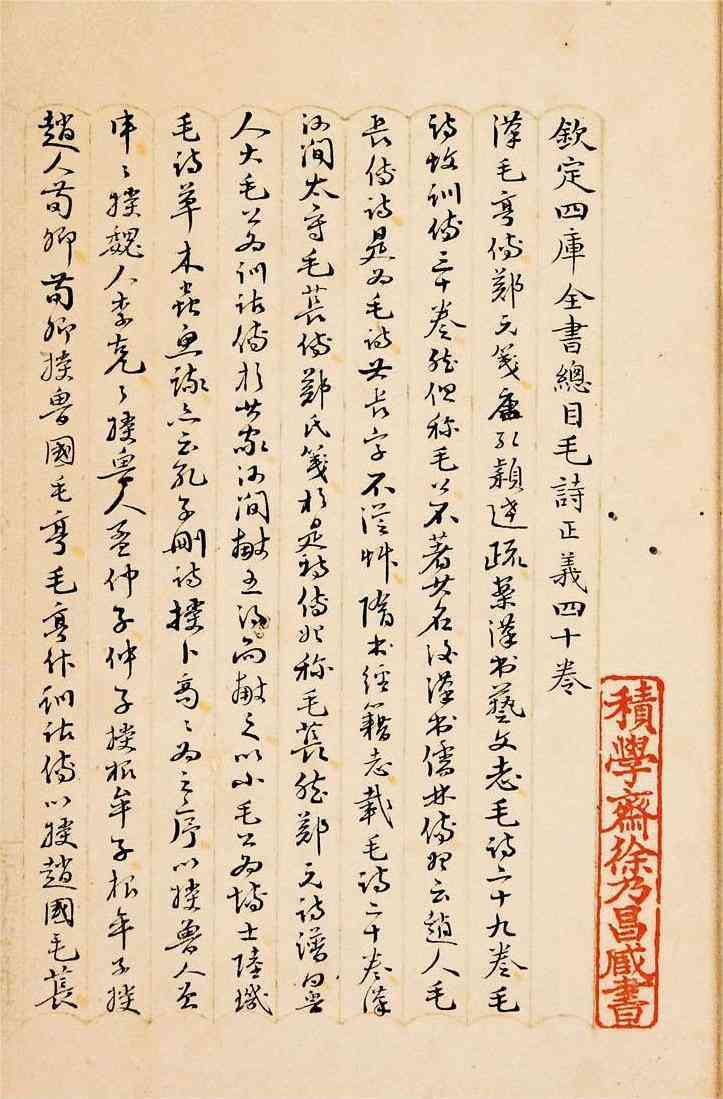 欽定四庫全書總目毛詩正義四十卷
漢毛亨傳鄭元箋唐孔穎達疏案漢書藝文志毛詩二十九卷毛
詩故訓傳三十卷然但称毛公不著其名後漢書儒林傳始云趙人毛
長傳詩是為毛詩其長字不從艸隋書經籍志載毛詩二十卷漢
河間太守毛萇傳鄭氏箋於是詩傳始称毛萇然鄭元詩譜曰魯
人大毛公為訓詁傳於其家河間獻王得而獻之以小毛公為博士陸璣
毛詩草木蟲魚疏亦云孔子刪詩授卜商〻為之序以授魯人曾
申〻授魏人李克〻授魯人孟仲子仲子授根牟子根牟子授
趙人荀卿荀卿授魯國毛亨毛亨作訓詁傳以授趙國毛萇
積學齋徐乃昌藏書